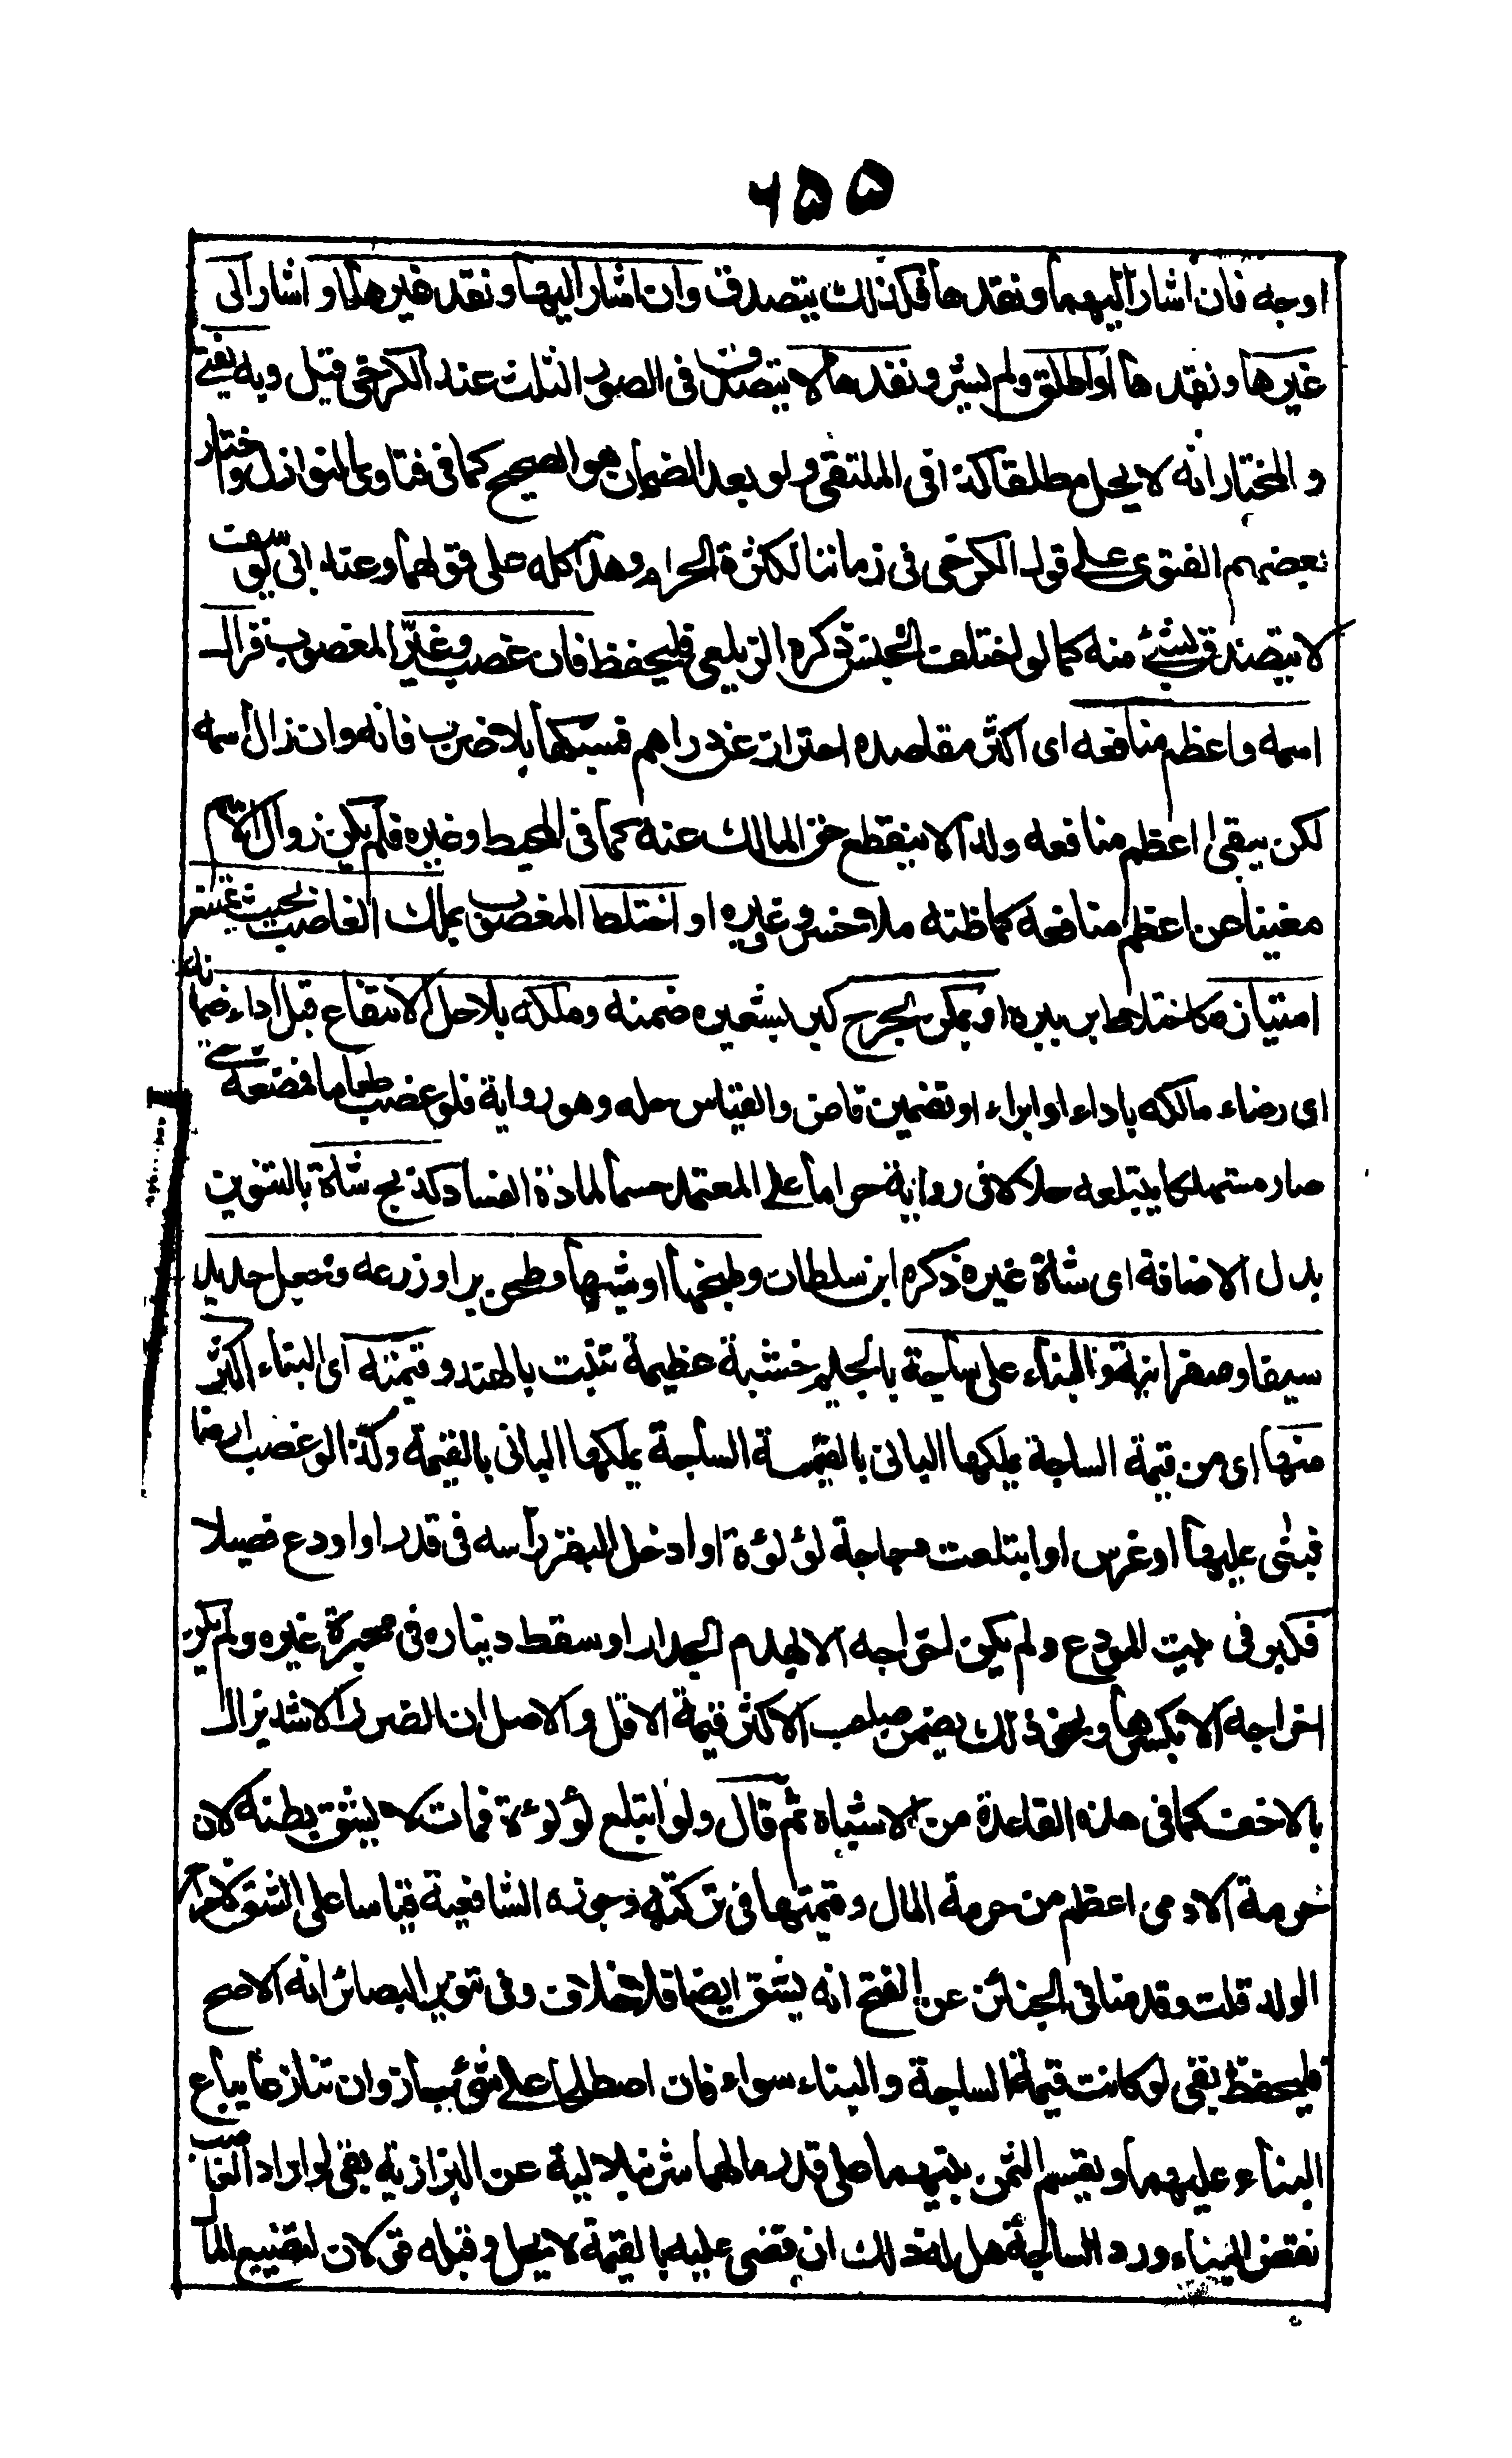 ٦٥٥
اوجه فان اشار اليهما ونقدها فكذلك يتصدق وان اشار اليها ونقد غيرها او اشار الى
غيرها ونقدها او اطلق ولم يشر ونقدها لا يتصدق فى الصور الثلث عند الكرخى قيل وبه يفتى
و المختار انه لا يحل مطلقا كذا فى الملتقى ولو بعد الضمان هو الصحيح كما فى فتاوى النوازل واختار
بعضهم الفتوى على قول الكرخى فى زماننا لكثرة الحرام وهذا كله على قولهما وعند ابى يوسف
لا يتصدق بشئ منه كما لو اختلف الجنس ذكره الزيلعى فليحفظ فان غصب وغيّر المغصوب فزال
اسمه واعظم منافعه اى اكثر مقاصده احترازا عن دراهم فسبكها بلا ضرب فانه وان زال اسمه
لكن يبقى اعظم منافعه ولذا لا ينقطع حق المالك عنه كما فى المحيط وغيره فلم يكن زوال الاسم
مغنيا عن اعظم منافعه كما ظنه ملا خسرو وغيره او اختلط المغصوب بملك الغاصب بحيث يمتنع
امتيازه كاختلاط بر ببره او يمكن بحرج كبر بشعيره ضمنه وملكه بلا حل الانتفاع قبل اداء ضمانه
اى رضاء مالكه باداء او ابراء او تضمين قاض والقياس حله وهو رواية فلو غصب طعاما فمضغه حتى
صار مستهلكا يبتلعه حلالا فى رواية حراما على المعتمد حسما لمادة الفساد كذبح شاة بالتنوين
بدل الاضافة اى شاة غيره ذكره ابن سلطان وطبخها او شيها وطحن بر او زرعه وجعل حديد
سيفا وصفر انية والبناء على ساجة بالجيم خشبة عظيمة تنبت بالهند وقيمته اى البناء اكثر
منها اى من قيمة الساجة يملكها البانى بالقيمة الساجة يملكها البانى بالقيمة وكذا لو غصب ارضا
فبنى عليها او غرس او ابتلعت دجاجة لؤلؤة او ادخل البقر رأسه فى قدر او اودع فصيلا
فكبر فى بيت المودع ولم يكن اخراجه الا بهدم الجدار او سقط ديناره فى محبرة غيره ولم يكن
اخراجه الا بكسرها ونحو ذلك يضمن صاحب الاكثر قيمة الاقل والاصل ان الضرر الاشد يزال
بالاخف كما فى هذه القاعدة من الاشباه ثم قال ولو ابتلع لؤلؤة فمات لا يشق بطنه لان
حرمة الادمى اعظم من حرمة المال وقيمتها فى تركته وجوزه الشافعية قياسا على الشق لاخراج
الولد قلت وقدمنا فى الجنائز عن الفتح انه يشق ايضا فلا خلاف وفى تنوير البصائر انه الاصح
فليحفظ بقى لو كانت قيمة الساجة والبناء سواء فان اصطلحا على شئ جاز وان تنازعا يباع
البناء عليهما ويقسم الثمن بينهما على قدر مالهما شرنبلالية عن البزازية بقى لو اراد الغاصب
نقض البناء ورد الساجة هل له ذلك ان قضى عليه بالقيمة لا يحل وقبله قولان لتضييع المال